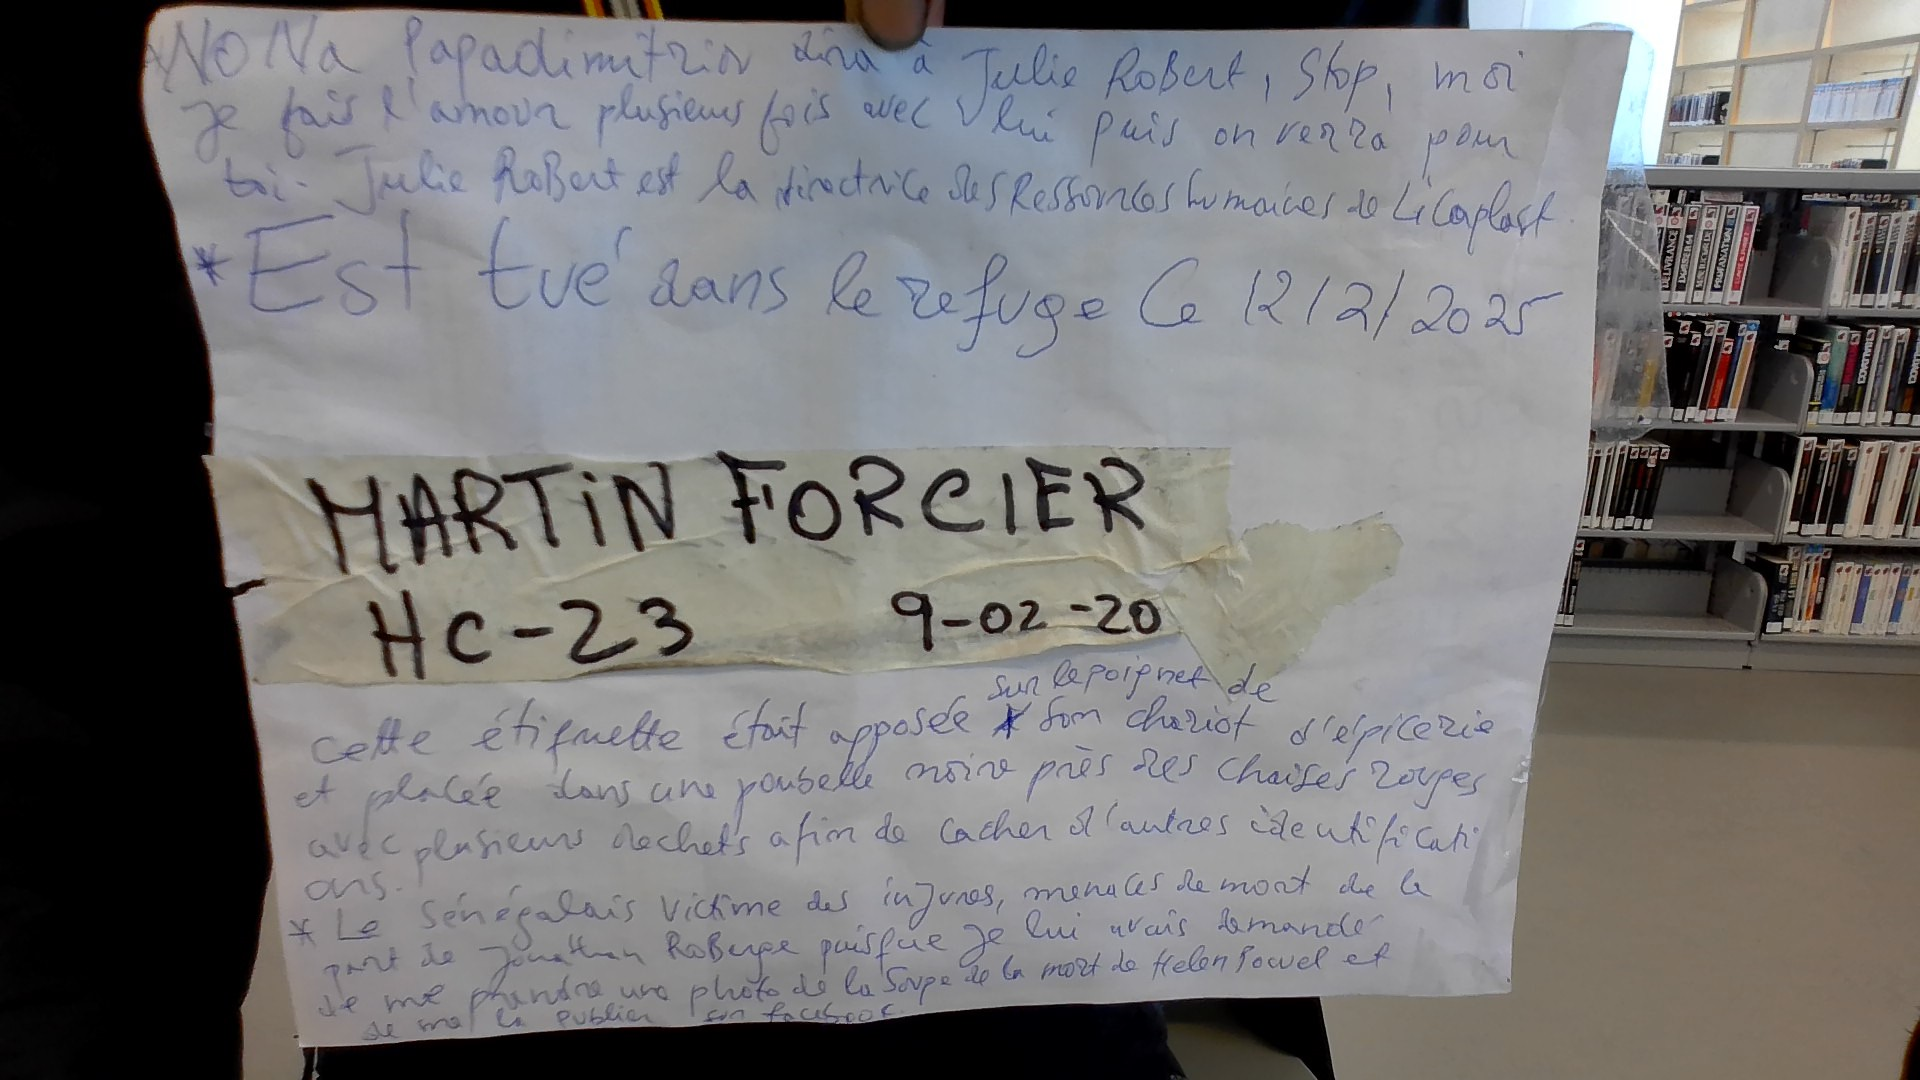 NONa Papadimitriov dira à Julie RoBert, Stop, moi
je fais l'amour plusieurs fois avec lui puis on verra pour
toi. Julie RoBert est la directrice des Ressources humaines de Licaplast.
* Est tué dans le refuge le 12/2/2025
MARTIN FORCIER
HC-23 9-02-20
sur le poignet de
cette étiquette était apposée son chariot d'épicerie
et placée dans une poubelle noire près des chaises rouges
avec plusieurs dechets afin de cacher d'autres identificati
ons.
* Le Sénégalais victime des injures, menaces de mort de la
part de Jonathan RoBerge puisque je lui avais demandé
de me prendre une photo de la soupe de la mort de Helen Powel et
de me la publier sur facebook.
DÉLIVRANCE